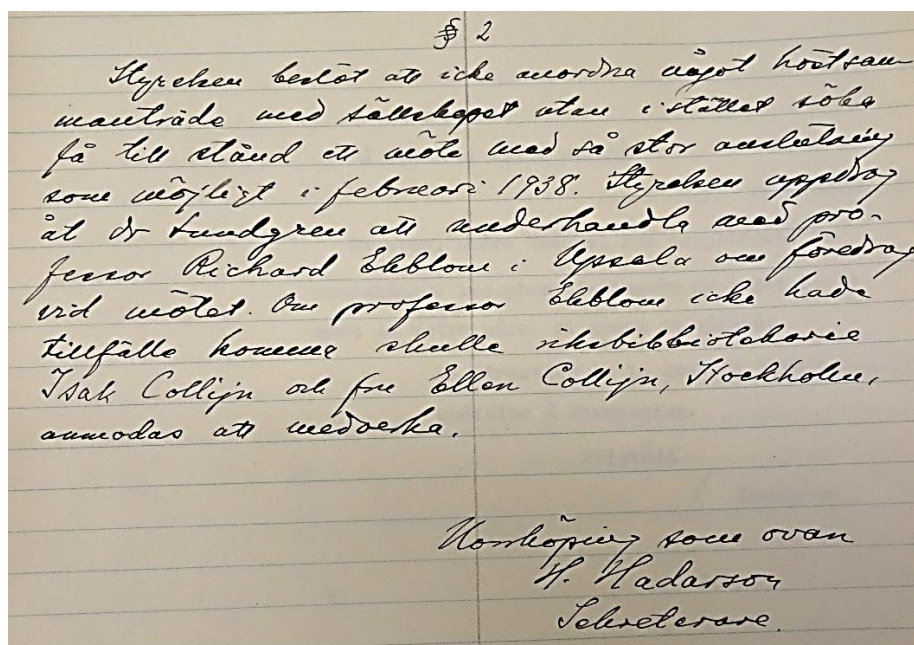 § 2
Styrelsen beslöt att icke anordna något höstsam-
manträde med sällskapet utan i stället söka
få till stånd ett möte med så stor anslutning
som möjligt i februari 1938. Styrelsen uppdrog
åt dr Lundgren att underhandla med pro-
fessor Richard Ekblom i Upsala om föredrag
vid mötet. Om professor Ekblom icke hade
tillfälle komma skulle riksbibliotekarie
Isak Collijn och fru Ellen Collijn, Stockholm,
anmodas att medverka.
Norrköping som ovan
H. Hadarson
Sekreterare.